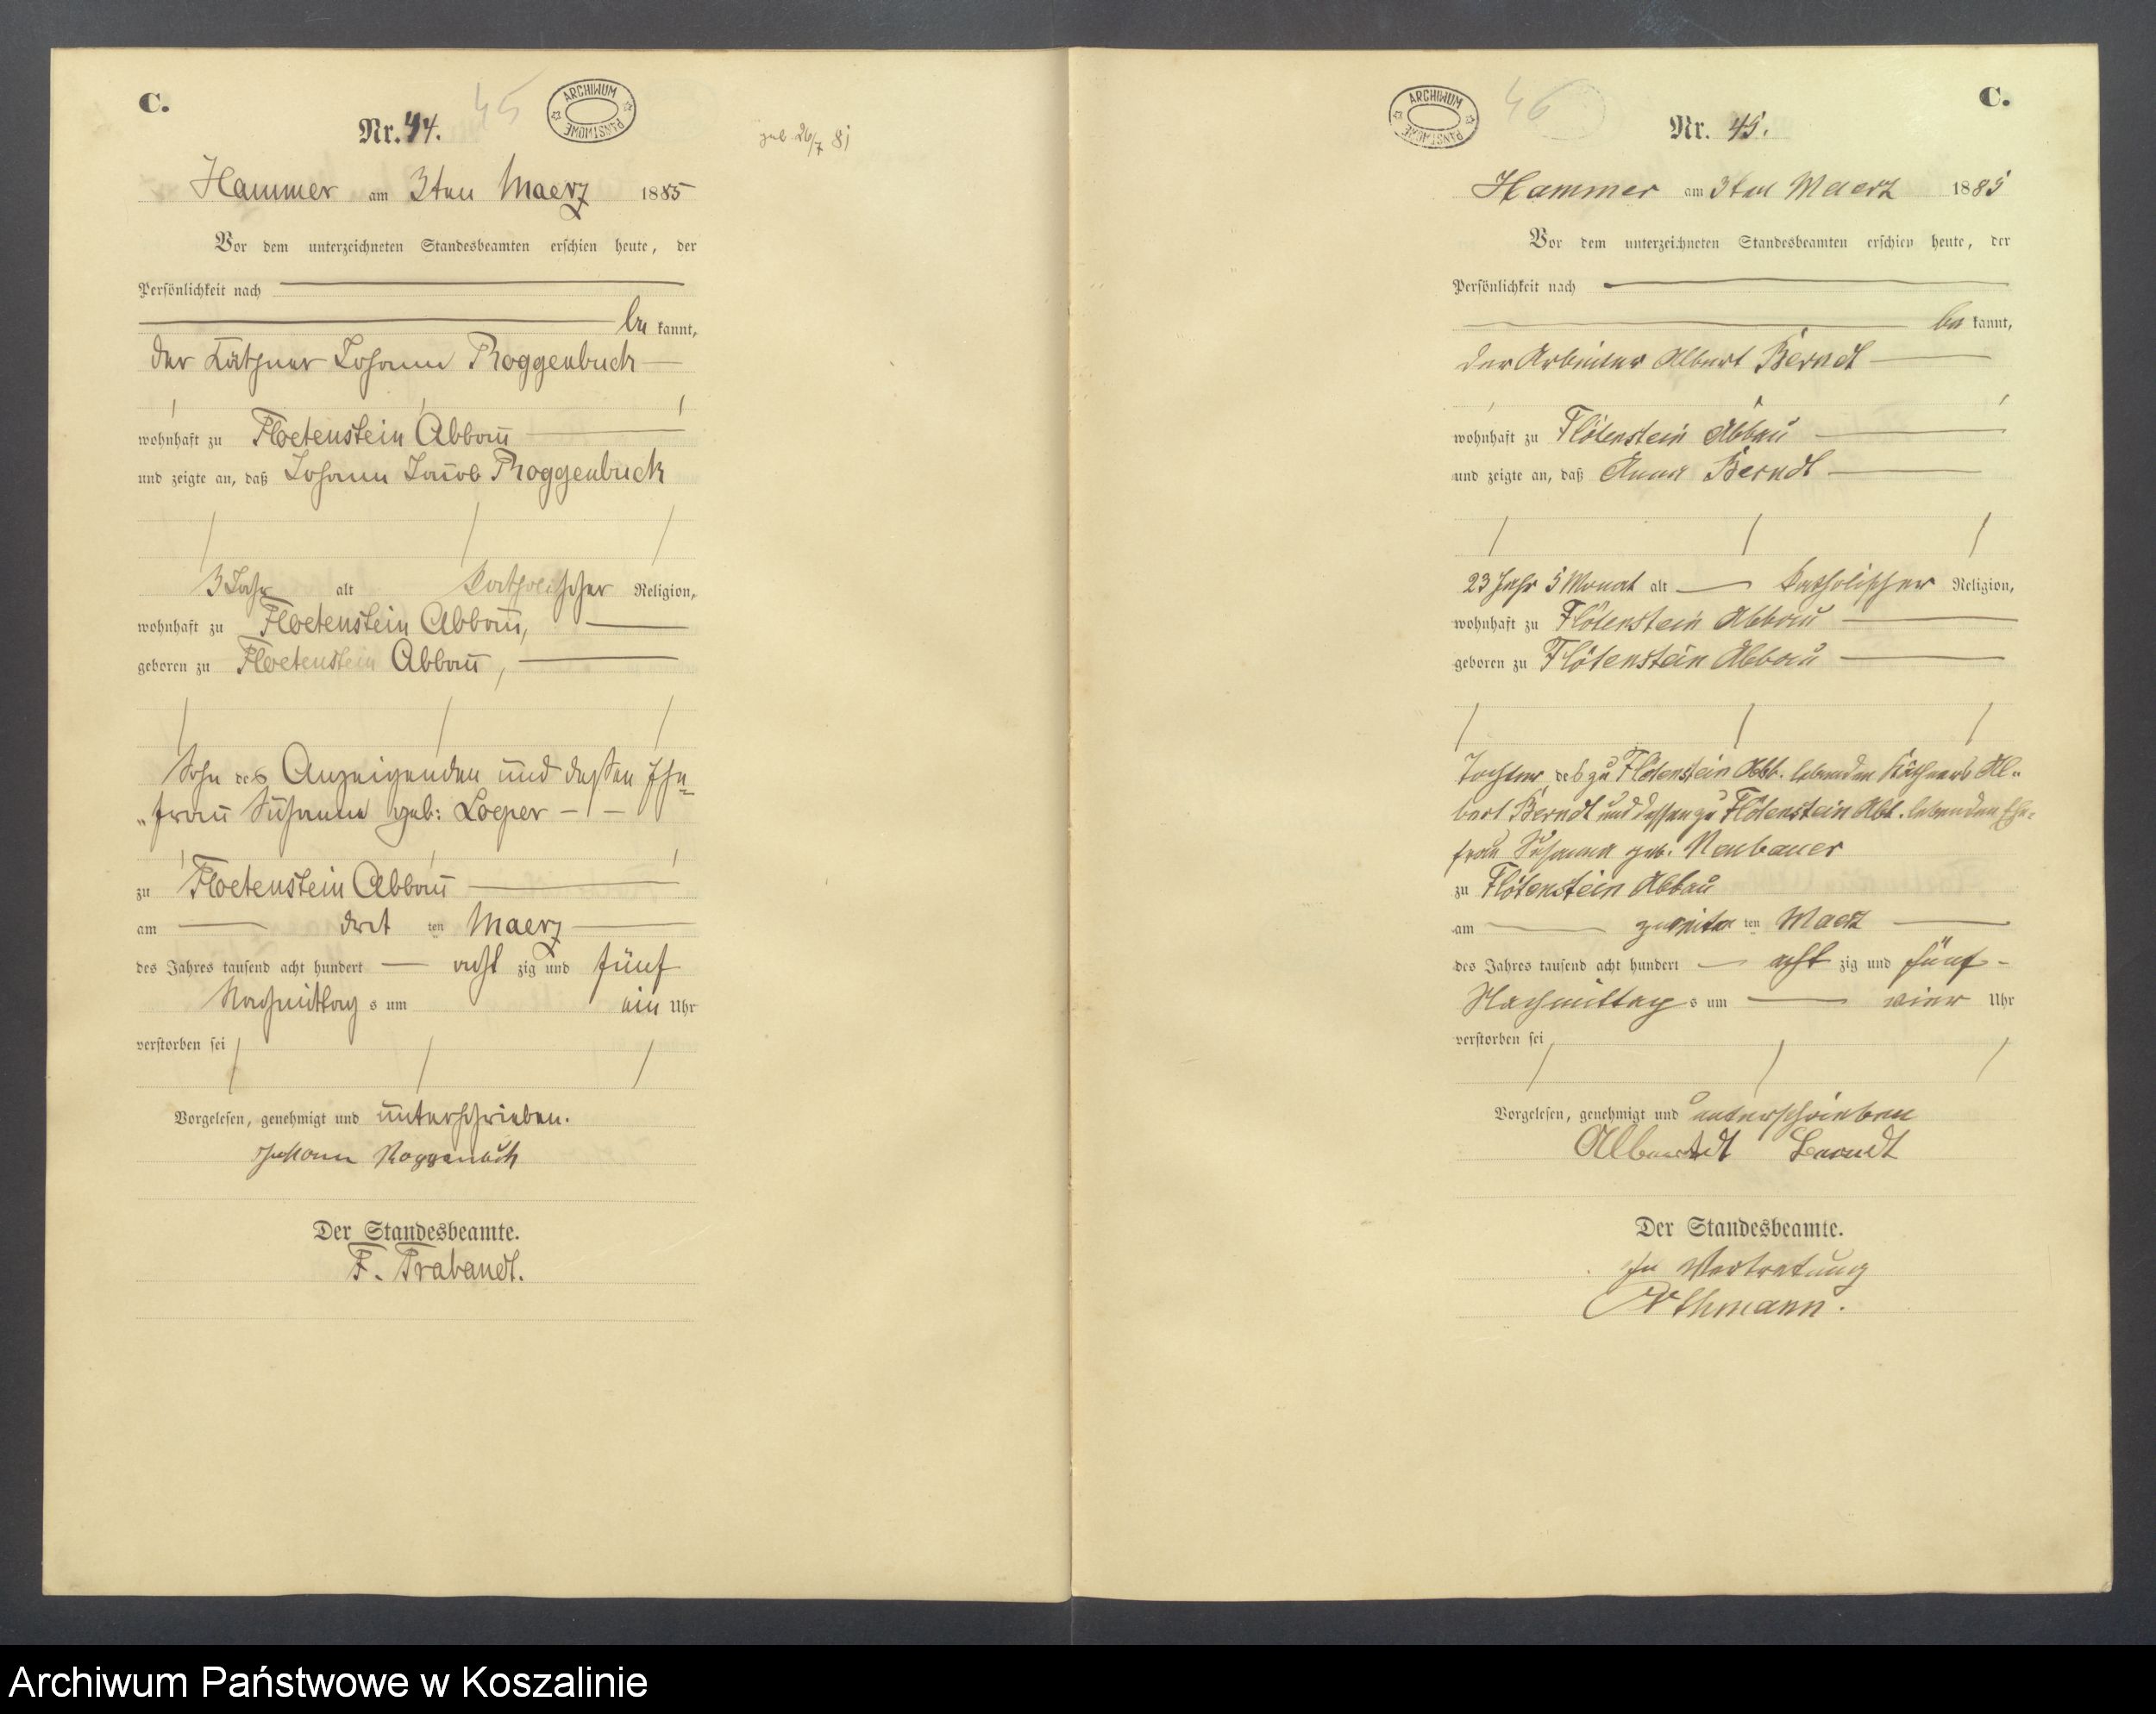 C.
45
ARCHIWUM PAŃSTWOWE
Nr. 44.
geb 26/7 81
Hammer am 3ten Maerz 1885
Vor dem unterzeichneten Standesbeamten erschien heute, der
Persönlichkeit nach
be kannt,
der Käthner Johann Roggenbuck
wohnhaft zu Floetenstein Abbau
und zeigte an, daß Johann Jacob Roggenbuck
3 Jahr alt Katholischer Religion,
wohnhaft zu Floetenstein Abbau,
geboren zu Floetenstein Abbau,
Sohn des Anzeigenden und deßen Ehe
frau Susanna geb: Loeper
zu Floetenstein Abbau
am drit ten Maerz
des Jahres tausend acht hundert acht zig und fünf
Nachmittag s um ein Uhr
verstorben sei
Vorgelesen, genehmigt und unterschrieben.
Johann Roggenbuck
Der Standesbeamte.
F. Prabandt.
C.
46
ARCHIWUM PAŃSTWOWE
Nr. 45.
Hammer am 3ten Maerz 1885
Vor dem unterzeichneten Standesbeamten erschien heute, der
Persönlichkeit nach
be kannt,
der Arbeiter Albert Berndt
wohnhaft zu Flötenstein Abbau
und zeigte an, daß Anna Berndt
23 Jahr 5 Monat alt Katholischer Religion,
wohnhaft zu Flötenstein Abbau
geboren zu Flötenstein Abbau
Tochter des zu Flötenstein Abb. lebenden Käthners Al-
bert Berndt und dessen zu Flötenstein Abb. lebenden Ehe-
frau Susanna geb. Neubauer
zu Flötenstein Abbau
am zweiten ten Maerz
des Jahres tausend acht hundert acht zig und fünf
Nachmittag s um vier Uhr
verstorben sei
Vorgelesen, genehmigt und unterschrieben
Der Standesbeamte.
In Vertretung
Archiwum Państwowe w Koszalinie